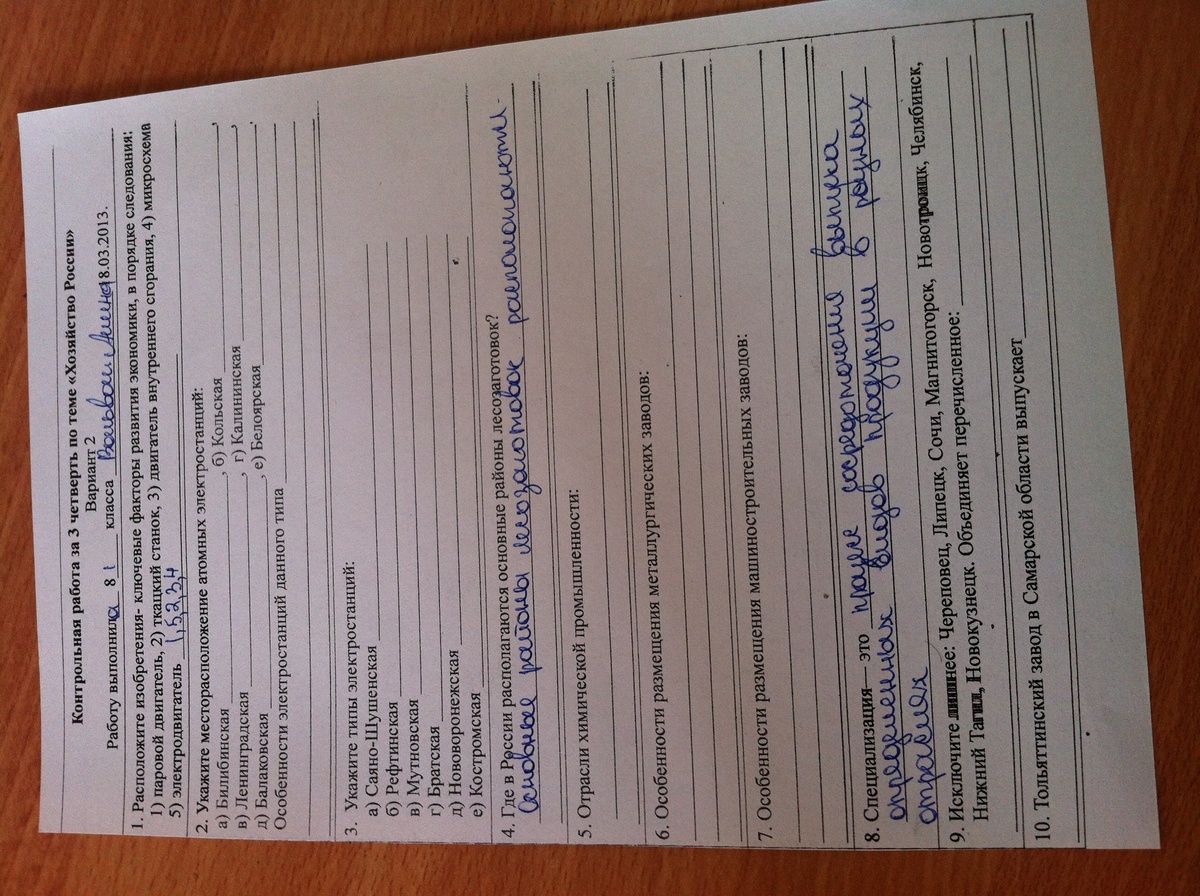 Контрольная работа за 3 четверть по теме «Хозяйство России»
Вариант 2
Работу выполнила 8 1 класса 8.03.2013.
1. Расположите изобретения- ключевые факторы развития экономики, в порядке следования:
1) паровой двигатель, 2) ткацкий станок, 3) двигатель внутреннего сгорания, 4) микросхема
5) электродвигатель 1,5,2,3,4
2. Укажите месторасположение атомных электростанций:
а) Билибинская , б) Кольская ,
в) Ленинградская , г) Калининская ,
д) Балаковская , е) Белоярская .
Особенности электростанций данного типа
3. Укажите типы электростанций:
а) Саяно-Шушенская
б) Рефтинская
в) Мутновская
г) Братская
д) Нововоронежская
е) Костромская
4. Где в России располагаются основные районы лесозаготовок?
Основные районы лесозаготовок
5. Отрасли химической промышленности:
6. Особенности размещения металлургических заводов:
7. Особенности размещения машиностроительных заводов:
8. Специализация— это процесс сосредоточения выпуска
определенных видов продукции в разных
отраслях
9. Исключите лишнее: Череповец, Липецк, Сочи, Магнитогорск, Новотроицк, Челябинск,
Нижний Тагил, Новокузнецк. Объединяет перечисленное:
10. Тольяттинский завод в Самарской области выпускает